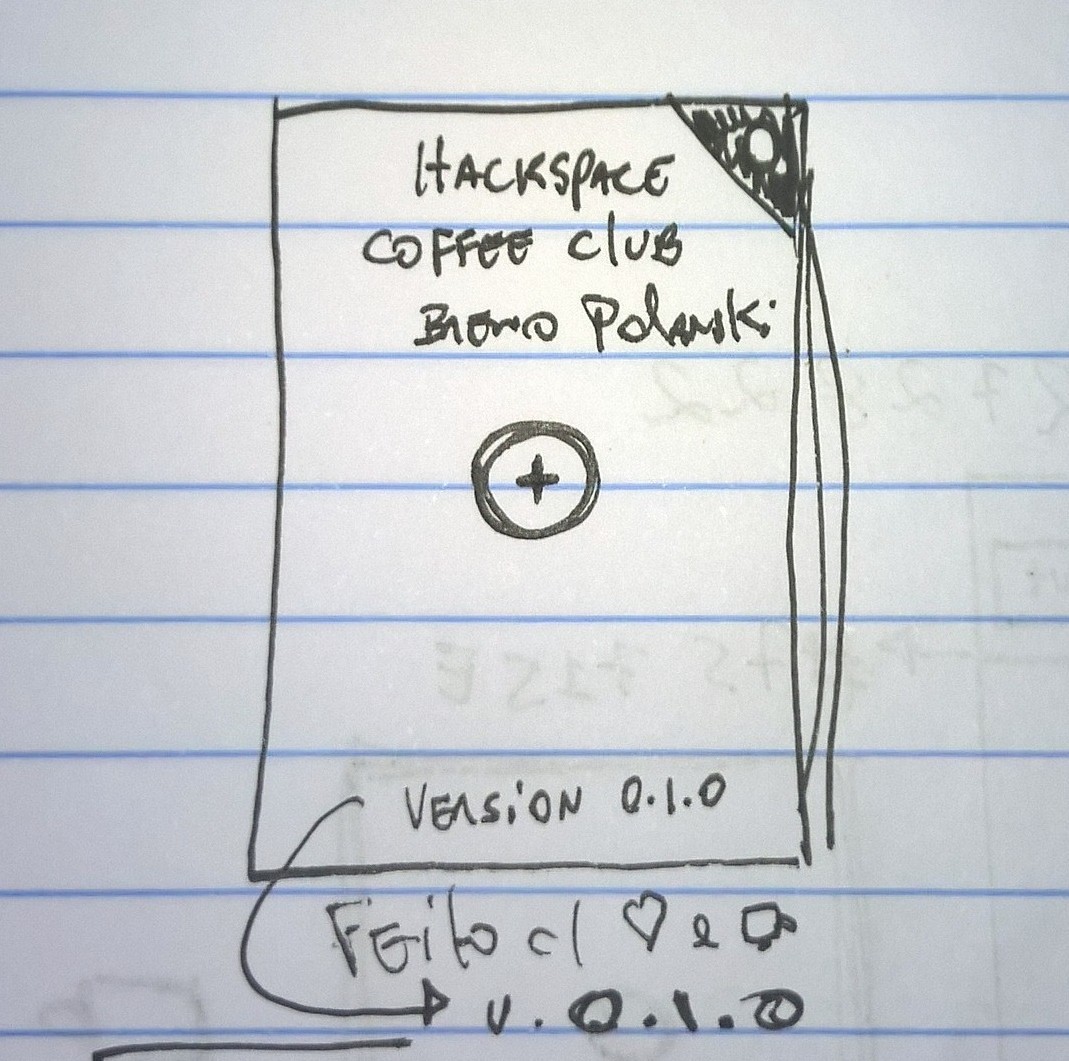 HACKSPACE
COFFEE CLUB
BRENO POLANSKI
VERSION 0.1.0
FEITO C/ ♡ &
V. 0.1.0